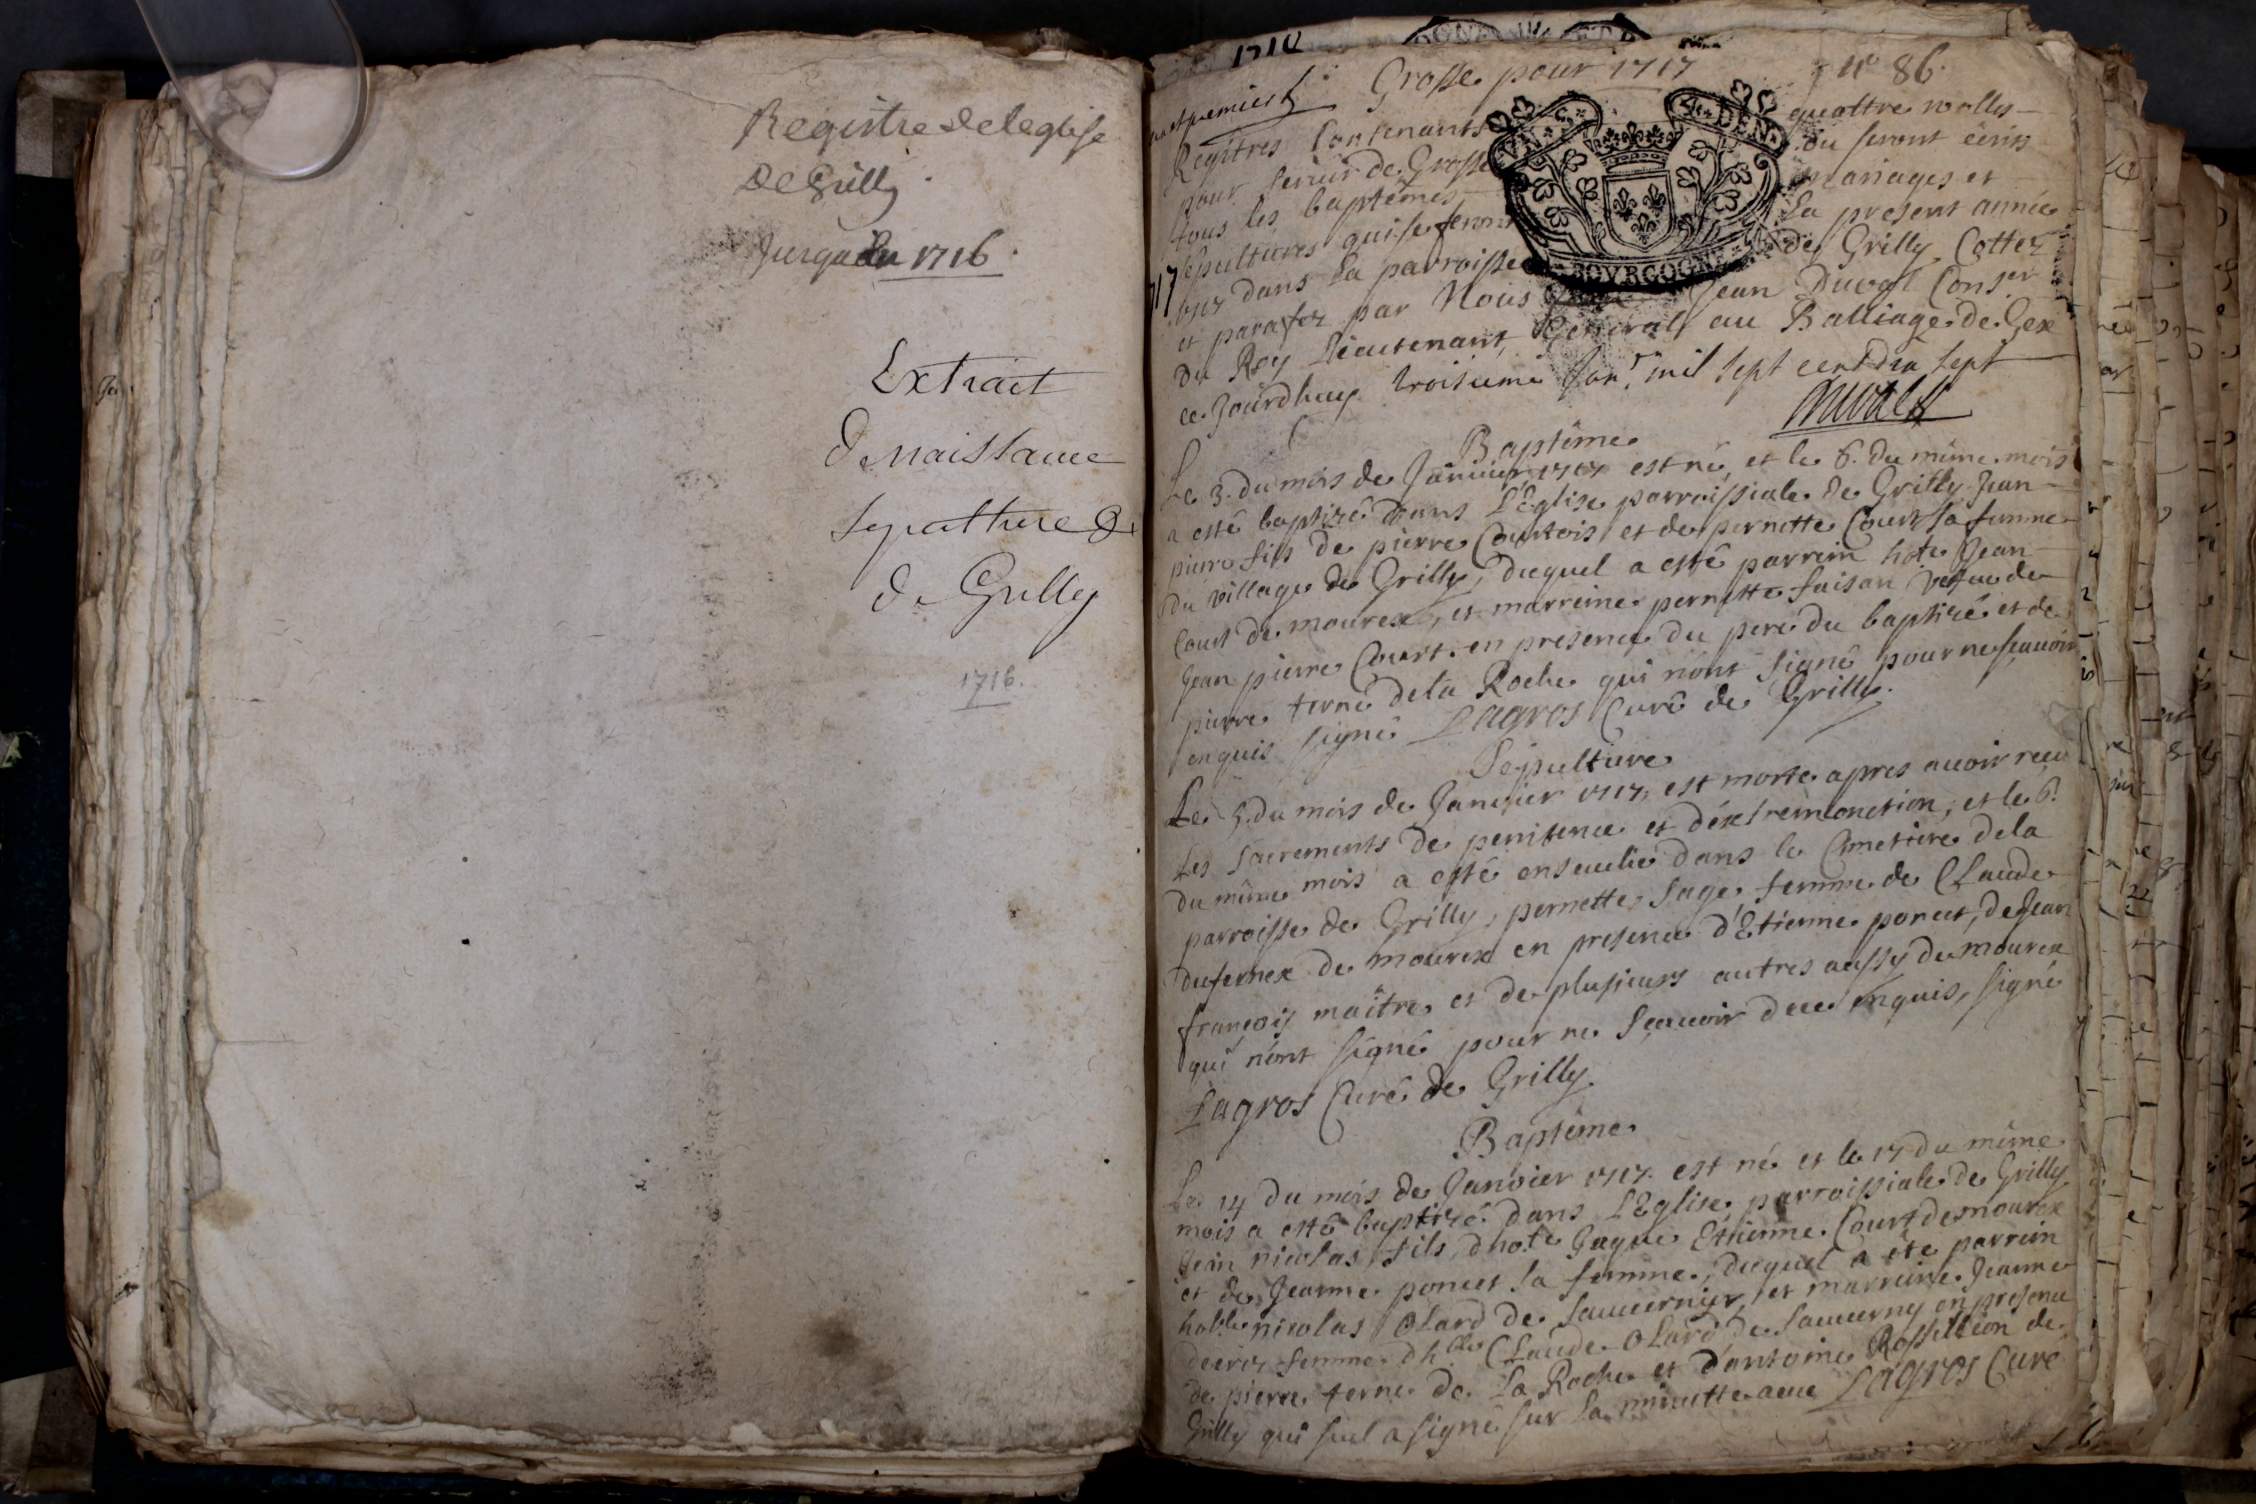 Registre de leglise
De Grilly
Jusqu'au 1716.
Extrait
de naissance
sepulture &
de Grilly
1716.
1718
Grosse pour 1717
n° 86.
feuillet premier
Registres Contenants quattre rolles
pour servir de Grosse ou seront écrits
tous les baptêmes mariages et
sepultures qui se feront la present année
1717 dans la parroisse de Grilly Cottez
et parafez par Nous Jean Duval Conser
du Roy Lieutenant General au Balliage de Gex
ce Jourdhuy troisieme Janr mil sept cent dix sept
Duval
GEN.
BOVRGOGNE
1717
Baptême
Le 3. du mois de Janvier 1717 est né, et le 6. du même mois
a esté baptizé dans L'Eglise parroissiale de Grilly Jean
pierre fils de pierre Courtois et de pernette Court sa femme
du village de Grilly, duquel a esté parrein hste Jean
Court de mourex, et marreine pernette faisan vefue de
Jean pierre Court. en presence du pere du baptizé et de
pierre terne de la Roche qui n'ont signé pour ne scauoir
enquis signé Lagros Curé de Grilly.
Sépulture
Le 5. du mois de Janvier 1717. est morte apres auoir receu
Les sacrements de penitence et d'éxtremeonction, et le 6.
du même mois a esté enseuelie dans le Cimetiere de la
parroisse de Grilly, pernette sage femme de Claude
dufernex de mourex en presence d'Etienne poncet, de Jean
françois maître et de plusieurs autres aussy de mourex
qui n'ont signé pour ne scauoir de ce enquis, signé
Lagros Curé de Grilly.
Baptême
Le 14 du mois de Janvier 1717. est né et le 17 du même
mois a esté baptizé dans L'Eglise parroissiale de Grilly
Jean nicolas fils d'hote Jaque Ethienne Court de mourex
et de Jeanne poncet sa femme, duquel a ete parrein
hoble nicolas Olard de sauuerny, et marreine Jeanne
femme d'hble Claude Olard de sauuerny en presence
de pierre terne de La Roche et d'antoine Rossillion de
Grilly qui seul a signé sur la minutte auec Lagros Curé